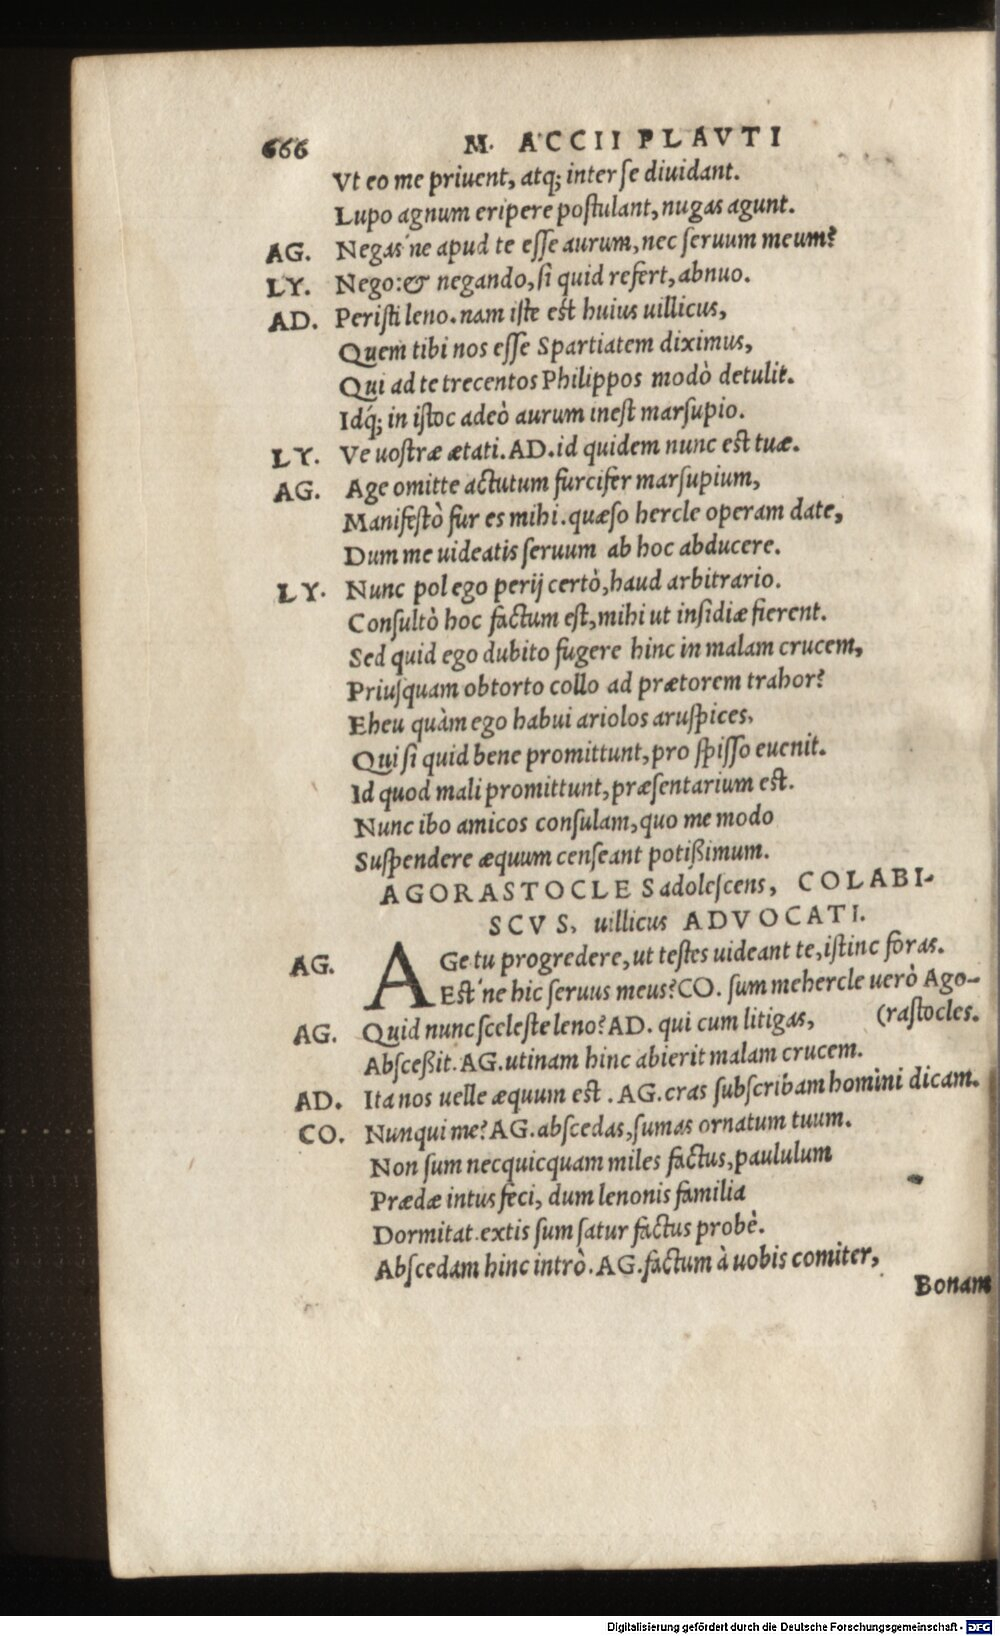 666 M. ACCII PLAVTI
Vt eo me priuent, atq; inter se diuidant.
Lupo agnum eripere postulant, nugas agunt.
AG. Negas'ne apud te esse aurum, nec seruum meum?
LY. Nego: & negando, si quid refert, abnuo.
AD. Peristi leno. nam iste est huius uillicus,
Quem tibi nos esse Spartiatem diximus,
Qui ad te trecentos Philippos modò detulit.
Idq́; in istoc adeò aurum inest marsupio.
LY. Ve uostræ ætati. AD. id quidem nunc est tuæ.
AG. Age omitte actutum furcifer marsupium,
Manifestò fur es mihi. quæso hercle operam date,
Dum me uideatis seruum ab hoc abducere.
LY. Nunc pol ego perij certò, haud arbitrario.
Consultò hoc factum est, mihi ut insidiæ fierent.
Sed quid ego dubito fugere hinc in malam crucem,
Priusquam obtorto collo ad prætorem trahor?
Eheu quàm ego habui ariolos aruspices,
Qui si quid bene promittunt, pro spisso euenit.
Id quod mali promittunt, præsentarium est.
Nunc ibo amicos consulam, quo me modo
Suspendere æquum censeant potißimum.
AGORASTOCLES adolescens, COLABI-
SCVS, uillicus ADVOCATI.
AG. AGe tu progredere, ut testes uideant te, istinc foras.
Est'ne hic seruus meus? CO. sum mehercle uerò Ago-
AG. Quid nunc sceleste leno? AD. qui cum litigas, (rastocles.
Absceßit. AG. utinam hinc abierit malam crucem.
AD. Ita nos uelle æquum est. AG. cras subscribam homini dicam.
CO. Nunqui me? AG. abscedas, sumas ornatum tuum.
Non sum necquicquam miles factus, paululum
Prædæ intus feci, dum lenonis familia
Dormitat. extis sum satur factus probè.
Abscedam hinc intrò. AG. factum à uobis comiter,
Bonam
Digitalisierung gefördert durch die Deutsche Forschungsgemeinschaft - DFG